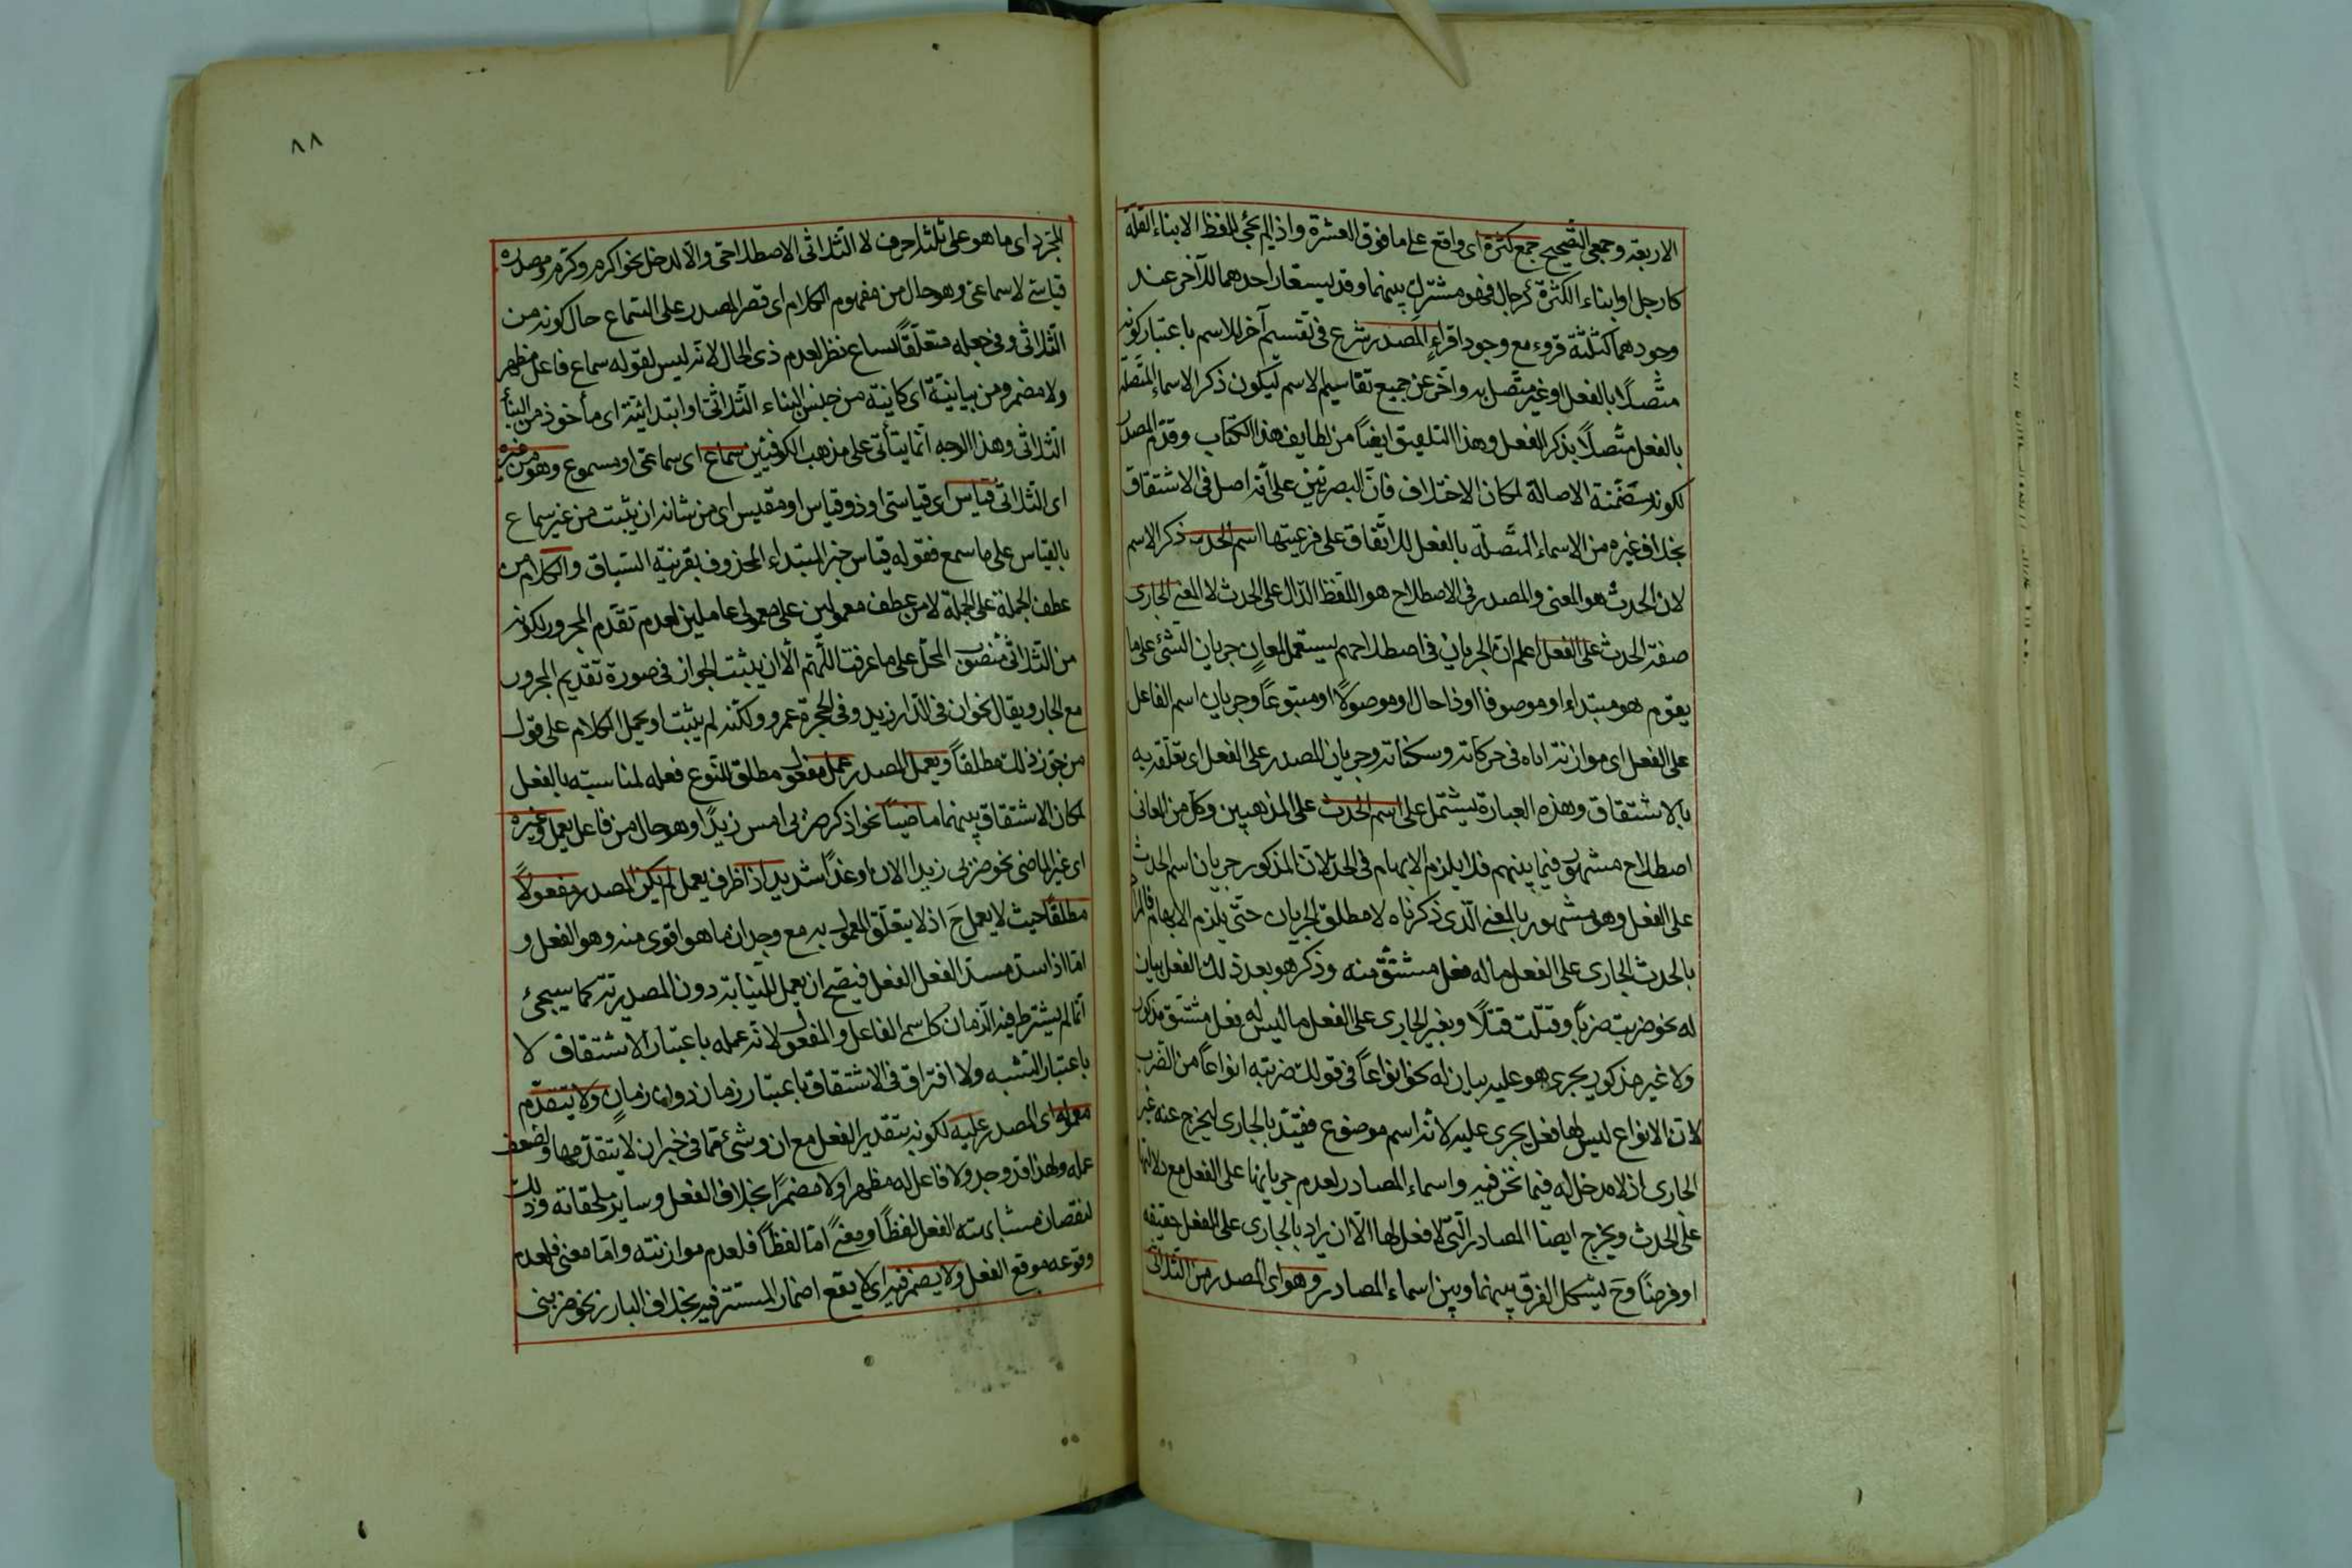 الاربعة وجمعى التصحيح جمع كثرة اى واقع على ما فوق العشرة واذا لم يجئ للفظ الا بناء القلة
كارجل او ابناء الكثرة كرجال فهو مشترك بينهما وقد يستعار احدهما للآخر عند
وجودهما كثلثة قروء مع وجود اقراء المصدر شرع فى تقسيم آخر للاسم باعتبار كونه
متصلا بالفعل او غير متصل به وآخر عن جميع تقاسيم الاسم ليكون ذكر الاسماء المتصلة
بالفعل متصلًا بذكر الفعل وهذا التلفيق ايضًا من لطايف هذا الكتاب وقدم المصدر
لكونه متضمنة الاصالة لمكان الاختلاف فان البصريين على انه اصل فى الاشتقاق
بخلاف غيره من الاسماء المتصلة بالفعل للاتفاق على فرعيتها اسم الحدث ذكر الاسم
لان الحدث هو المعنى والمصدر فى الاصطلاح هو اللفظ الدال على الحدث لا المعنى الجارى
صفة الحدث على الفعل اعلم ان الجريان فى اصطلاحهم يستعمل لمعانٍ جريان الشئ على ما
يقوم هو مبتداء او موصوفا او ذا حال او موصولًا او متبوعًا وجريان اسم الفاعل
على الفعل اى موازنته اياه فى حركاته وسكناته وجريان المصدر على الفعل اى تعلقه به
بالاشتقاق وهذه العبارة يشتمل على اسم الحدث على المذهبين وكل من المعانى
اصطلاح مشهور فيما بينهم فلا يلزم الابهام فى الحد لان المذكور جريان اسم الحدث
على الفعل وهو مشهور بالمعنى الذى ذكرناه لا مطلق الجريان حتى يلزم الابهام فالمراد
بالحدث الجارى على الفعل ما له فعل مشتق منه وذكر هو بعد ذلك الفعل بيان
له نحو ضربت ضربًا وقتلت قتلًا وبغير الجارى على الفعل ما ليس له فعل مشتق مذكور
ولا غير مذكور يجرى هو عليه بيان له نحو انواعًا فى قولك ضربته انواعًا من الضرب
لان الانواع ليس لها فعل يجرى عليه لانه اسم موضوع فقيد بالجارى ليخرج عنه غير
الجارى اذ لا مدخل له فيما نحن فيه واسماء المصادر لعدم جريانها على الفعل مع دلالتها
على الحدث ويخرج ايضا المصادر التى لا فعل لها الا ان يراد بالجارى على الفعل حقيقة
او فرضًا وح يشكل الفرق بينهما وبين اسماء المصادر وهو اى المصدر من الثلاثى
٨٨
المجرد اى ما هو على ثلثة احرف لا الثلاثى الاصطلاحى والا لدخل نحو اكرم وكرم ومصدره
قياسى لا سماعى وهو حال من مفهوم الكلام اى قصر المصدر على السماع حال كونه من
الثلاثى وفى جعله متعلقًا لسماع نظر لعدم ذى الحال لانه ليس لقوله سماع فاعل مظهر
ولا مضمر ومن بيانية اى كاينة من جنس البناء الثلاثى او ابتدائية اى مأخوذ من البناء
الثلاثى وهذا الوجه انما يتأتى على مذهب الكوفيين سماع اى سماعى او مسموع وهو من غيره
اى الثلاثى قياس اى قياسى او ذو قياس او مقيس اى من شانه ان يثبت من غير سماع
بالقياس على ما سمع فقوله قياس خبر المبتداء المحذوف بقرينة السباق والكلام من
عطف الجملة على الجملة لا من عطف معمولين على معمولى عاملين لعدم تقدم المجرور لكونه
من الثلاثى منصوب المحل على ما عرفت اللهم الا ان يثبت الجواز فى صورة تقديم المجرور
مع الجار ويقال نحو ان فى الدار زيد وفى الحجرة عمرو ولكنه لم يثبت او يحمل الكلام على قول
من جوز ذلك مطلقًا ويعمل المصدر عمل مفعول مطلق للنوع فعله لمناسبته بالفعل
لمكان الاشتقاق بينهما ماضيًا نحو اذكر ضربى امس زيدًا وهو حال من فاعل يعمل وغيره
اى غير الماضى نحو ضربى زيدا الان او غدًا شديد اذا ظرف يعمل لم يكن المصدر مفعولًا
مطلقًا حيث لا يعمل ح اذ لا يتعلق المعمول به مع وجدان ما هو اقوى منه وهو الفعل و
اما اذا سد مسد الفعل الفعل فيصح ان يعمل للنيابة دون المصدرية كما سيجئ
انما لم يشترط فيه الزمان كاسم الفاعل والمفعول لانه عمله باعتبار الاشتقاق لا
باعتبار الشبه ولا افتراق فى الاشتقاق باعتبار زمان دون زمانٍ ولا يتقدم
معموله اى المصدر عليه لكونه بتقدير الفعل مع ان وشئ مما فى خبر ان لا يتقدمها ولضعف
عمله ولهذا قد وجد ولا فاعل له مظهرا ولا مضمرًا بخلاف الفعل وساير ملحقاته وذلك
لنقصان مشابهته الفعل لفظًا ومعنى اما لفظًا فلعدم موازنته واما معنى فلعدم
وقوعه موقع الفعل ولا يضمر فيه اى لا يقع اضمار المستتر فيه بخلاف البارز نحو ضربنى